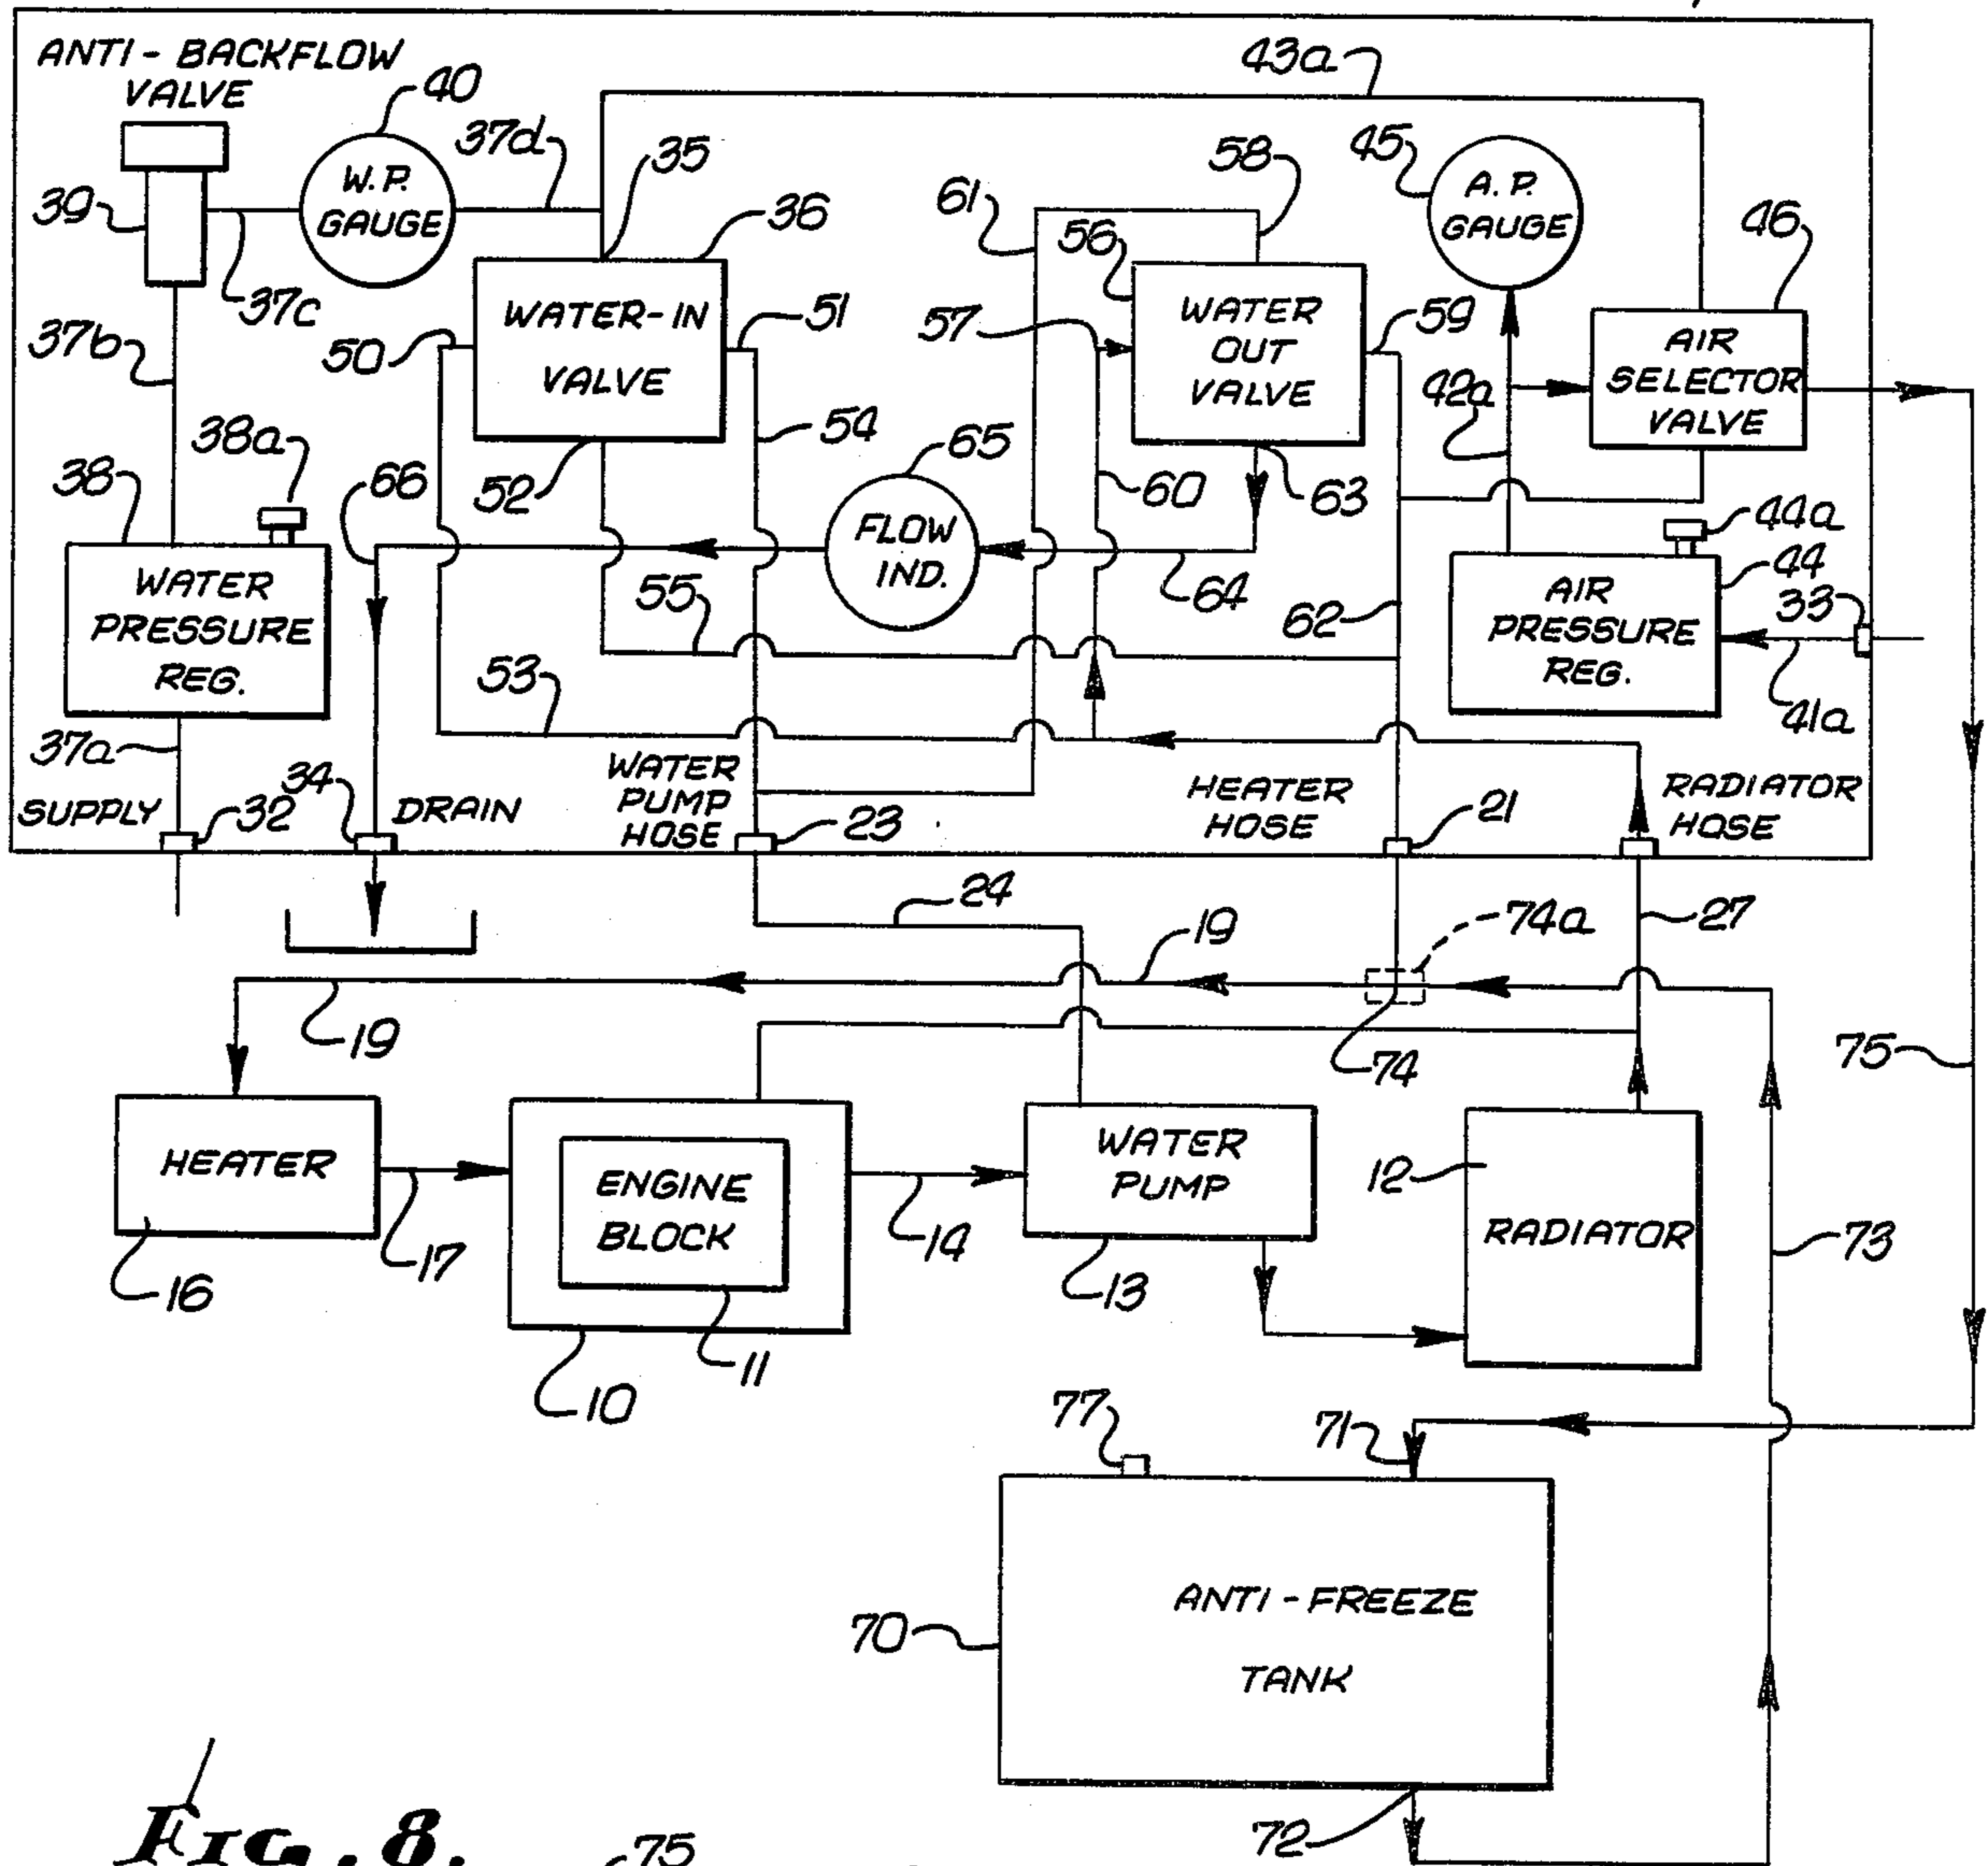 ANTI - BACKFLOW
VALVE
40
43a
37d
35
58
45
39
W.P.
GAUGE
36
61
56
A. P.
GAUGE
46
37c
WATER-IN
VALVE
51
WATER
OUT
VALVE
59
37b
50
57
AIR
SELECTOR
VALVE
42a
54
38a
65
38
66
52
60
63
44a
FLOW
IND.
WATER
PRESSURE
REG.
64
44
55
62
33
AIR
PRESSURE
REG.
53
41a
37a
34
WATER
PUMP
HOSE
HEATER
HOSE
RADIATOR
HOSE
SUPPLY
32
DRAIN
23
21
24
19
74a
27
19
74
75
HEATER
ENGINE
BLOCK
WATER
PUMP
12
RADIATOR
16
17
14
13
73
11
10
77
71
70
ANTI - FREEZE
TANK
72
FIG. 8.
75